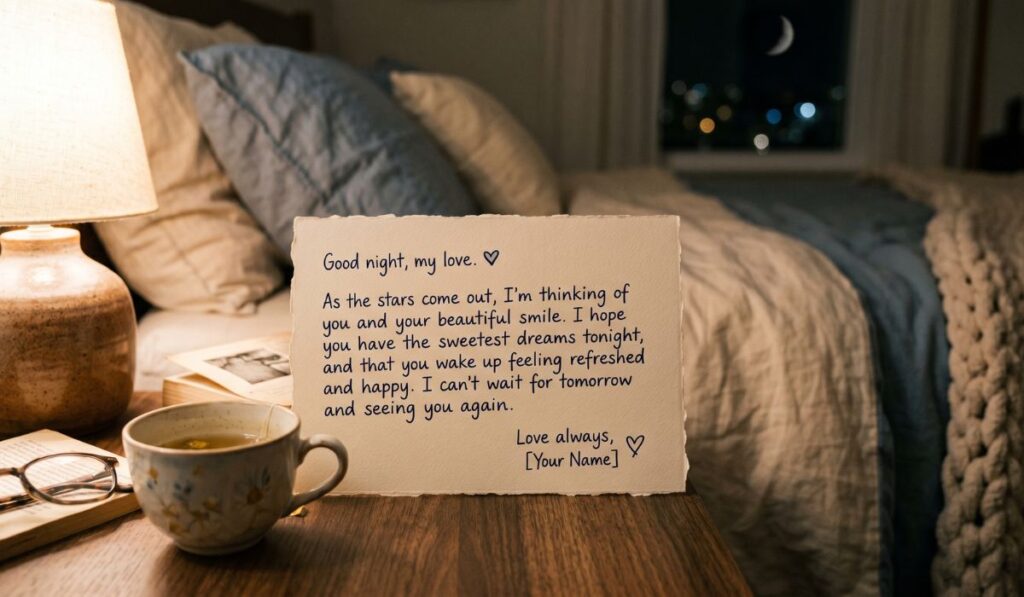 Good night, my love. ♡
As the stars come out, I'm thinking of
you and your beautiful smile. I hope
you have the sweetest dreams tonight,
and that you wake up feeling refreshed
and happy. I can't wait for tomorrow
and seeing you again.
Love always,
[Your Name] ♡